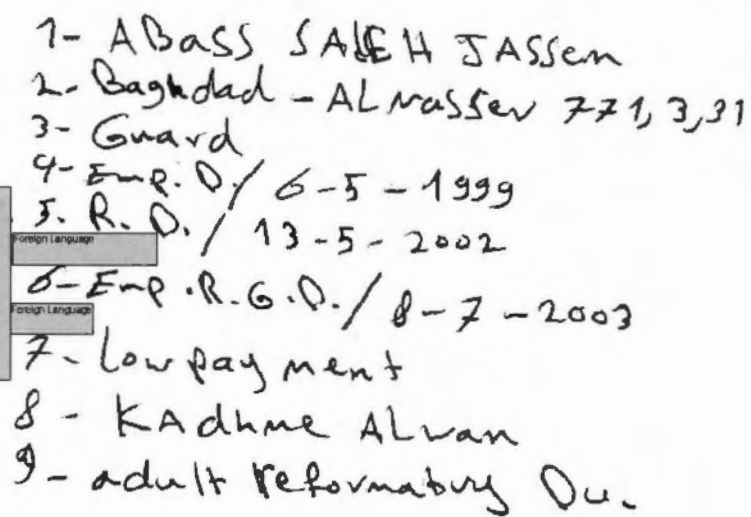 1- ABASS SALEH JASSem
2- Baghdad - ALnasser 771, 3, 31
3- Guard
4- Emp. D. / 6-5-1999
5. R. D. / 13-5-2002
Foreign Language
6- Emp. R. G. D. / 8-7-2003
Foreign Language
7- Low payment
8- KAdhme ALwan
9- adult reformatory Du.